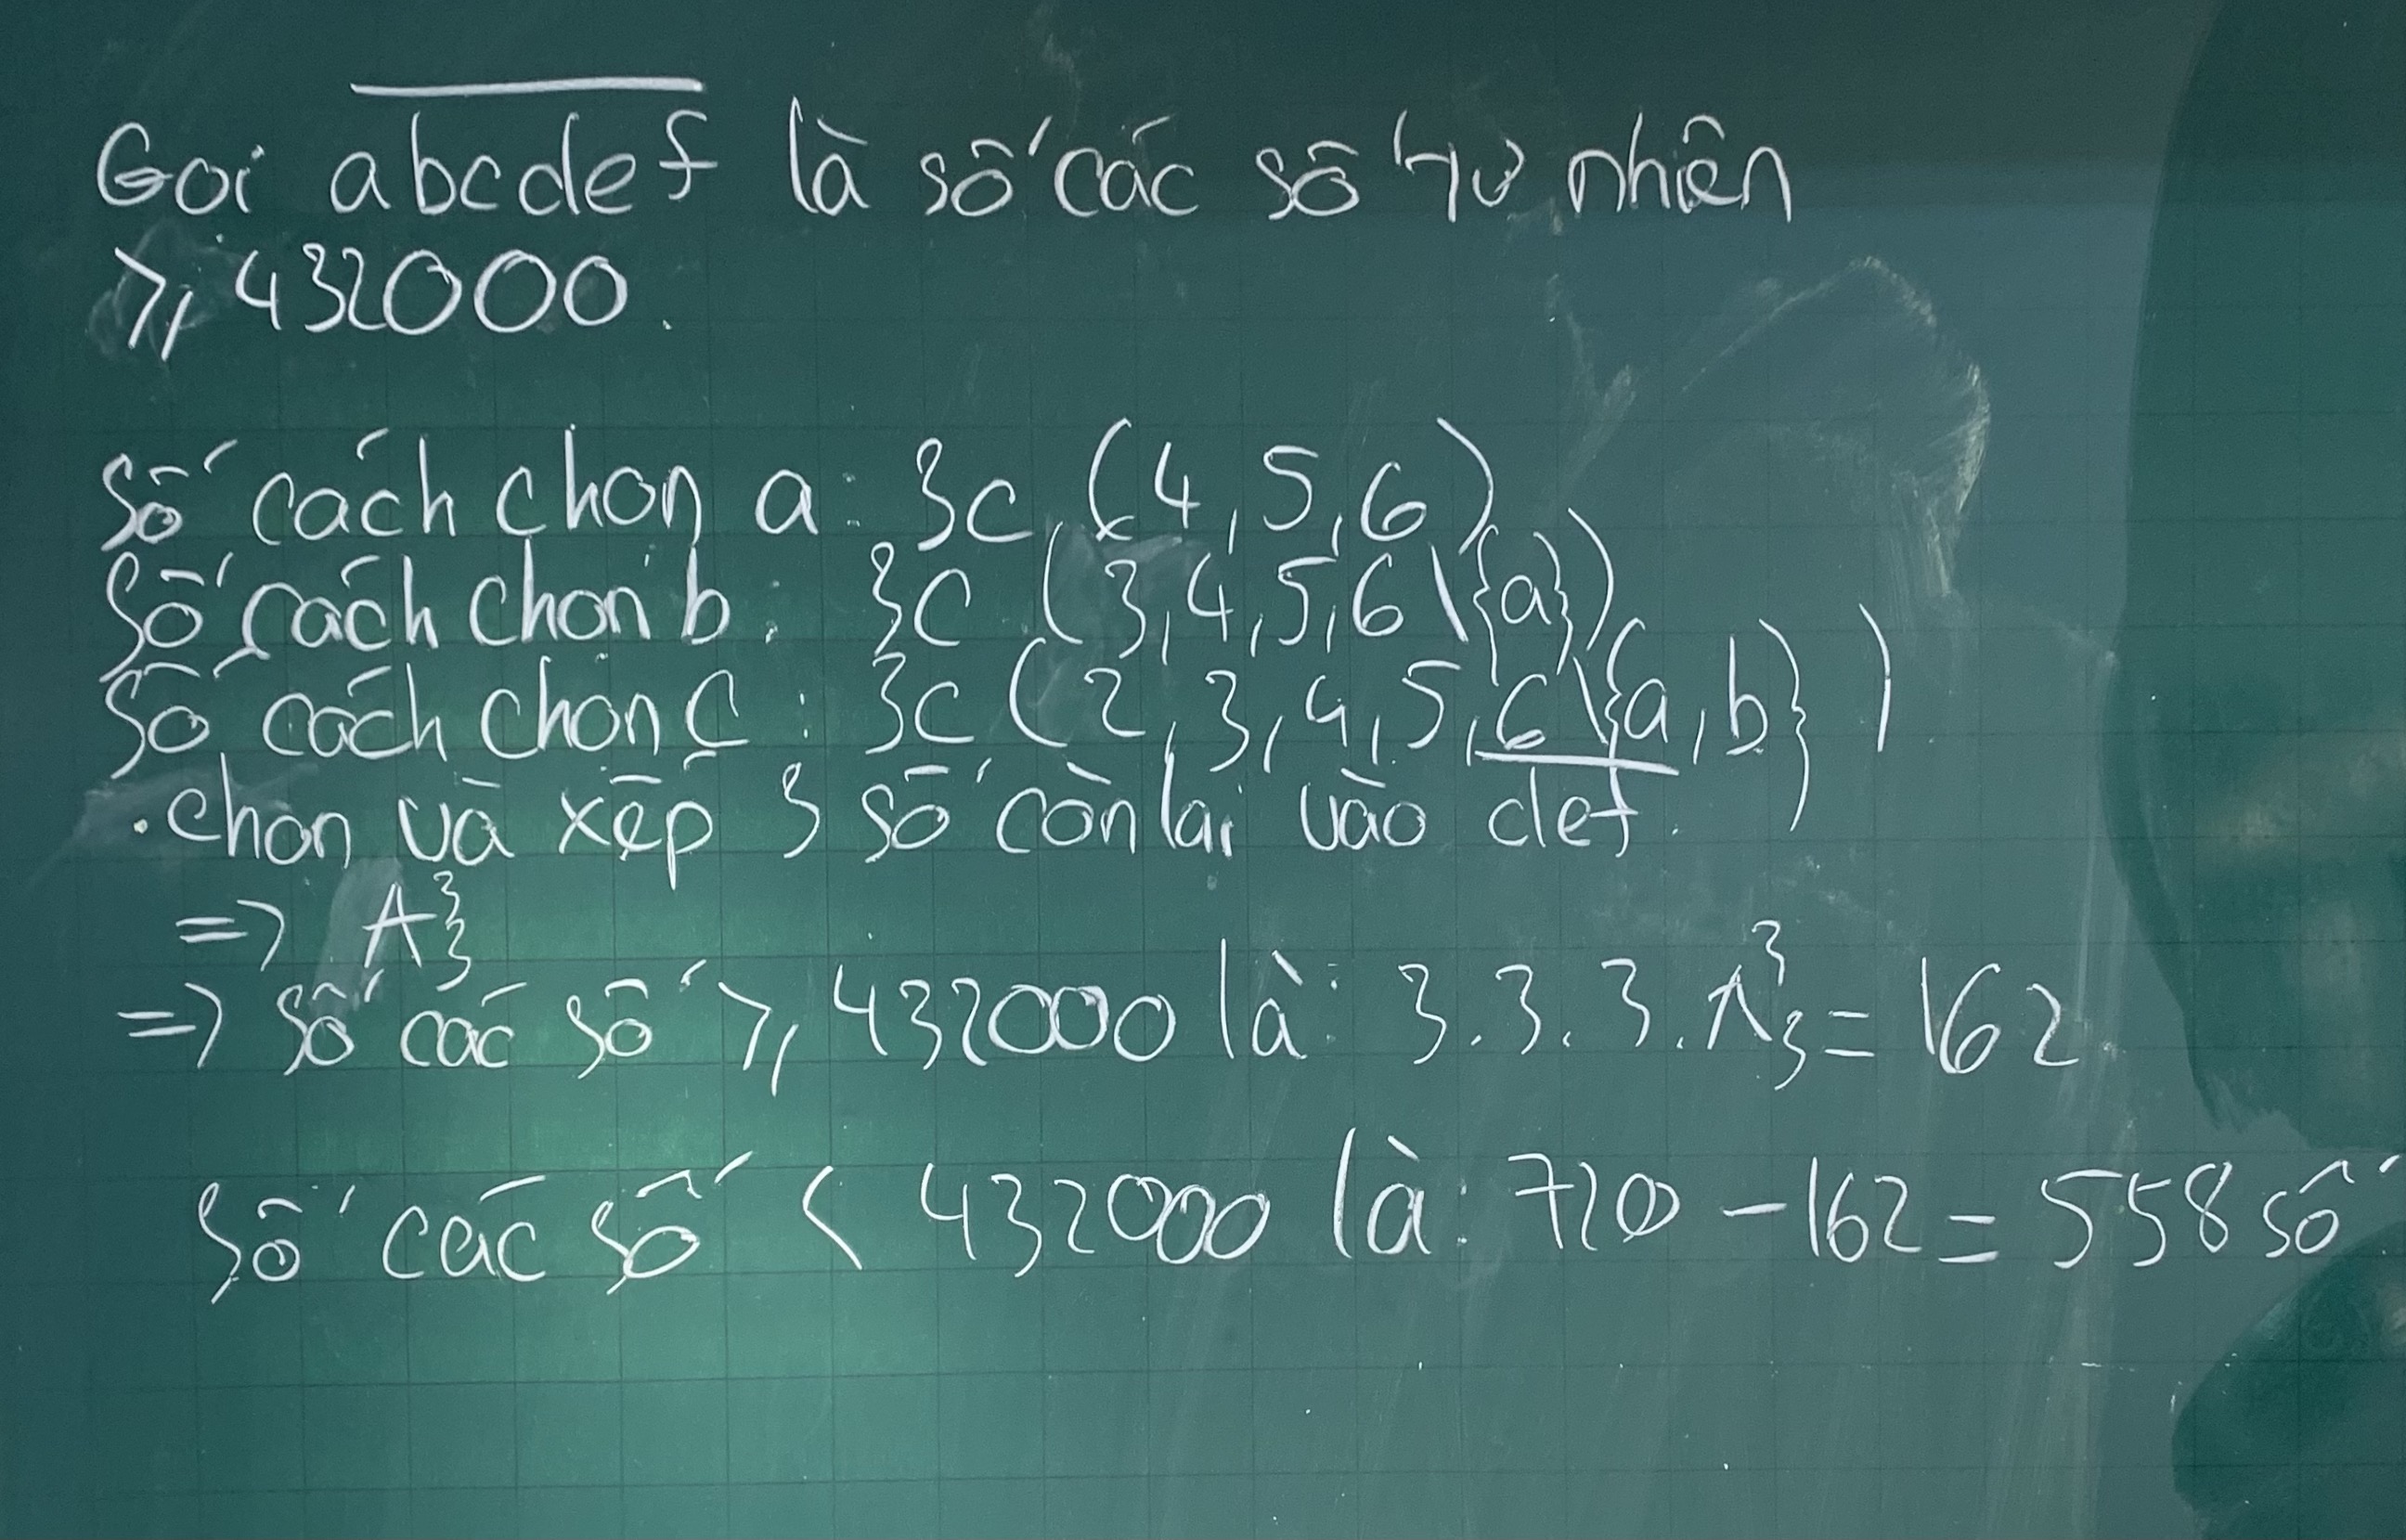 Gọi abcdef là số các số tự nhiên
⩾ 432000.
Số cách chọn a: 3c (4,5,6)
Số cách chọn b: 3c (3,4,5,6\{a})
Số cách chọn c: 3c (2,3,4,5,6\{a,b})
. chọn và xếp 3 số còn lại vào def.
=> A³₃
=> số các số ⩾ 432000 là: 3.3.3.A³₃ = 162
Số các số < 432000 là: 720 - 162 = 558 số